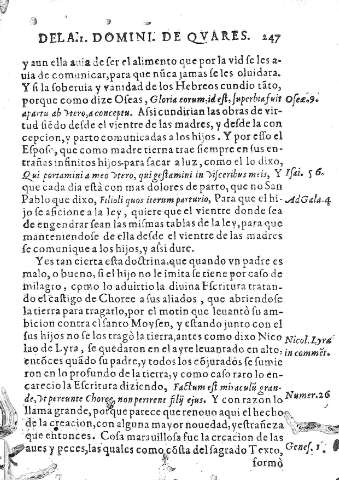 DELA.1. DOMINI. DE QVARES. 247
y aun ella auia de ser el alimento que por la vid se les a-
uia de comunicar, para que nũca jamas se les oluidara.
Y si la soberuia y vanidad de los Hebreos cundio tãto,
porque como dize Oseas, Gloria eorum, id est, superbia fuit
Oseæ. 9.
apartu ab vtero, a conceptu. Assi cundirian las obras de vir-
tud siẽdo desde el vientre de las madres, y desde la con
cepcion, y parto comunicadas a los hijos. Y por esso el
Esposo, que como madre tierna trae siempre en sus en-
trañas infinitos hijos para sacar a luz, como el lo dixo,
Qui portamini a meo vtero, qui gestamini in visceribus meis, Y
Isai. 56.
que cada dia està con mas dolores de parto, que no San
Pablo que dixo, Filioli quos iterum parturio, Para que el hi-
Ad Gala. 4
jo se aficione a la ley, quiere que el vientre donde sea
de engendrar sean las mismas tablas de la ley, para que
manteniendose de ella desde el vientre de las madres
se comunique a los hijos, y assi dure.
Yes tan cierta esta dostrina, que quando vn padre es
malo, o bueno, si el hijo no le imita se tiene por caso de
milagro, como lo aduirtio la diuina Escritura tratan-
do el castigo de Choree a sus aliados, que abriendose
la tierra para tragarlo, por el motin que leuantò su am
bicion contra el santo Moysen, y estando junto con el
sus hijos no se los tragò la tierra, antes como dixo Nico
Nicol. Lyra
lao de Lyra, se quedaron en el ayre leuantado en alto,
in commẽt.
entõces quãdo su padre, y todos los cõjurados se sumie
ron en lo profundo de la tierra, y como caso raro lo en-
carecio la Escritura diziendo, Factum est miraculũ gran-
de, vt pereunte Choree, non perirent filij ejus. Y con razõ lo
Numer. 26
llama grande, porque parece que renouo aqui el hecho
de la creacion, con alguna mayor nouedad, y estrañeza
que entonces. Cosa marauillosa fue la creacion de las
aues y peces, las quales como cõsta del sagrado Texto,
Genes. 1.
formò